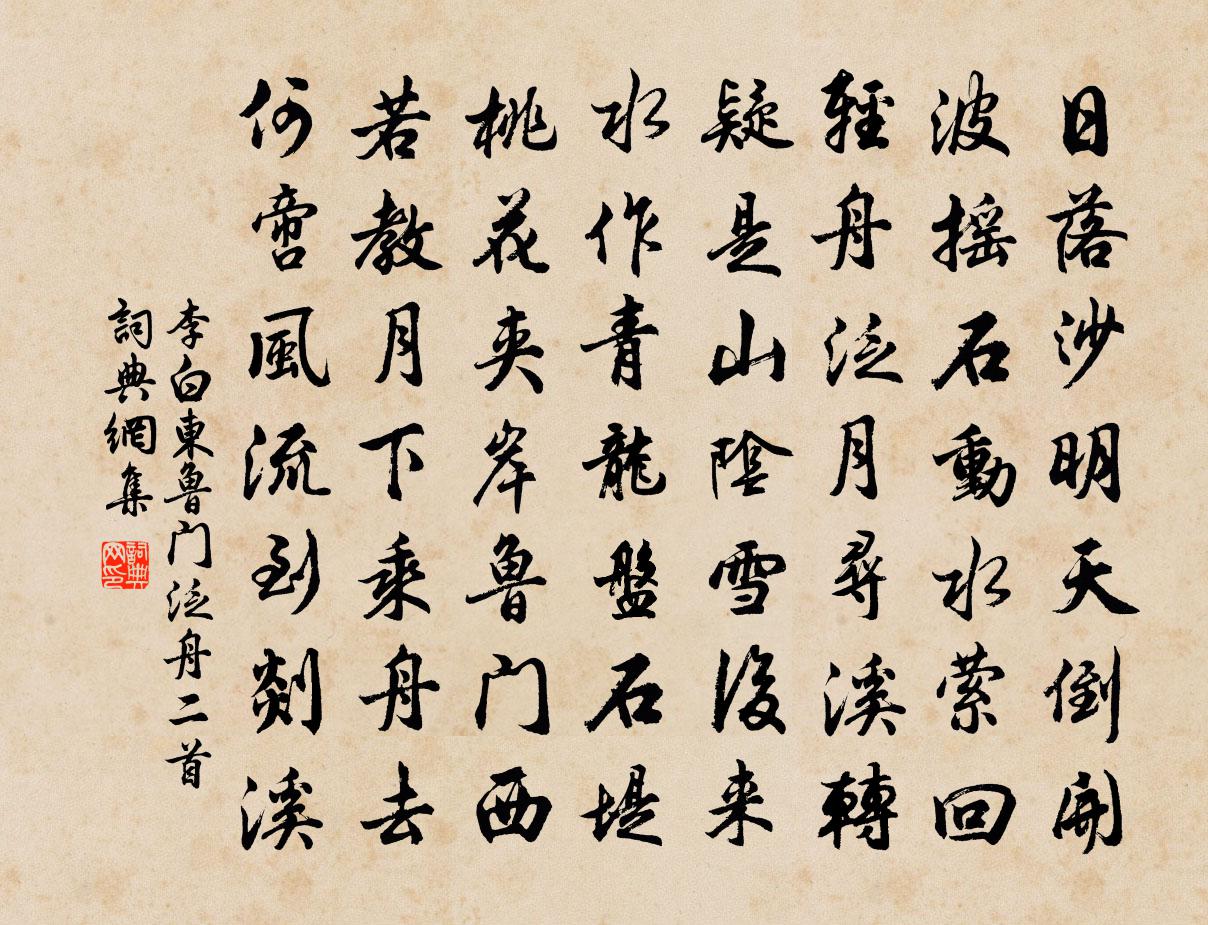 日落沙明天倒開
波搖石動水縈回
輕舟泛月尋溪轉
疑是山陰雪後来
水作青龍盤石堤
桃花夾岸魯門西
若教月下乘舟去
何啻風流到剡溪
李白東魯門泛舟二首
詞典網集
詞典网印